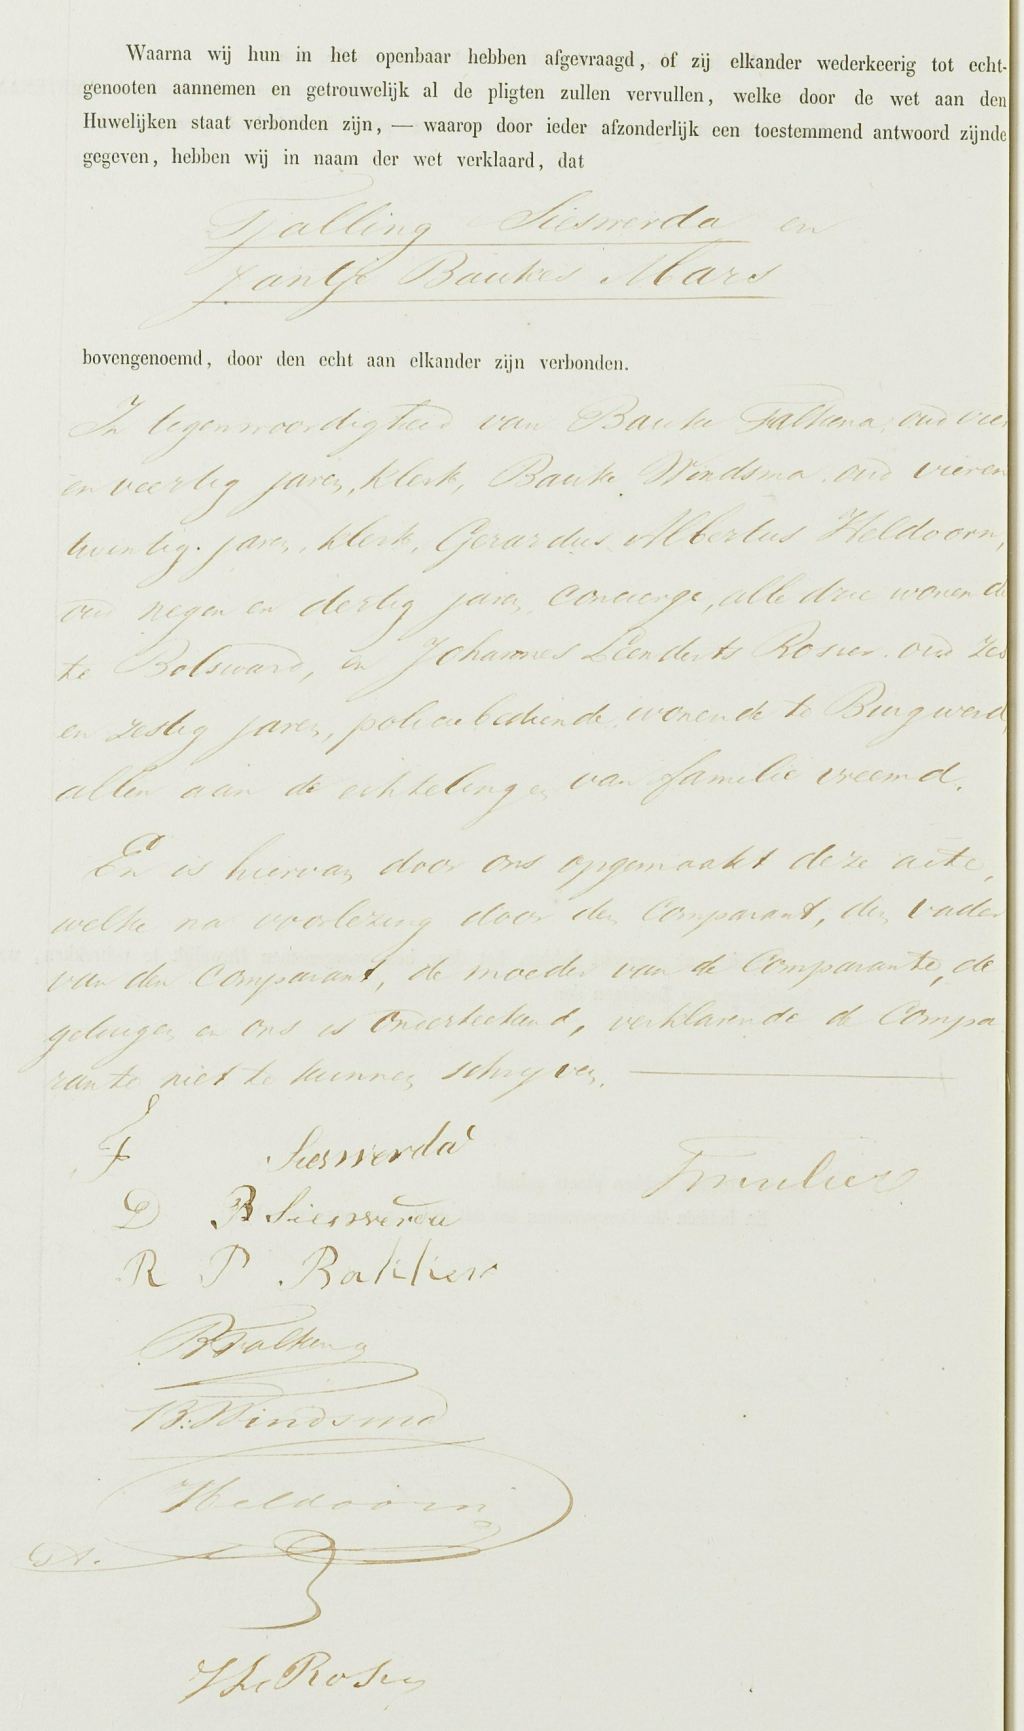 Waarna wij hun in het openbaar hebben afgevraagd, of zij elkander wederkeerig tot echt-
genooten aannemen en getrouwelijk al de pligten zullen vervullen, welke door de wet aan den
Huwelijken staat verbonden zijn, — waarop door ieder afzonderlijk een toestemmend antwoord zijnde
gegeven, hebben wij in naam der wet verklaard, dat
Tjalling Sieswerda en
Jantje Baukes Mars
bovengenoemd, door den echt aan elkander zijn verbonden.
In tegenwoordigheid van Bauke Falkena, oud vier
en veertig jaren, klerk, Bauke Windsma oud vieren
twintig jaren, klerk, Gerardus Albertus Heldoorn,
oud negen en dertig jaren, concierge, alle drie wonende
te Bolsward, en Johannes Leenderts Rosier oud zes
en zestig jaren, policiebediende wonende te Burgwerd,
allen aan de echtelingen van familie vreemd.
En is hiervan door ons opgemaakt deze acte,
welke na voorlezing door den Comparant, den vader
van den Comparant, de moeder van de Comparante, de
getuigen en ons is onderteekend, verklarende de Compa
rante niet te kunnen schrijven.
T Sieswerda
D B Sieswerda
R P Bakker
B Falkena
B. Windsma
Heldoorn